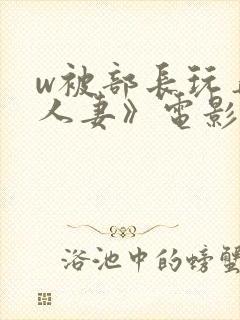 w被部長玩
人妻》電影
浴池中的螃蟹